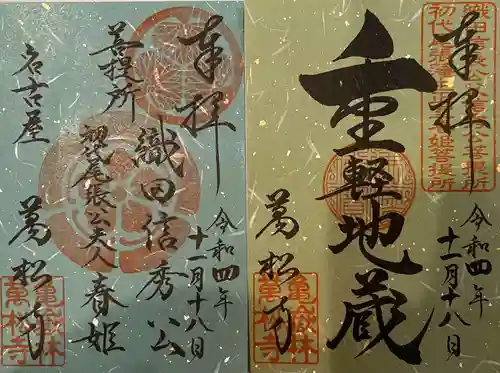 奉拝
令和四年
十一月十八日
重軽地蔵
萬松寺
織田信長公
初代
菩提所
亀嶽林
萬松寺
奉拝
令和四年
十一月十八日
織田信秀公
菩提所
初代尾張公夫人春姫
名古屋
萬松寺
亀嶽林
萬松寺